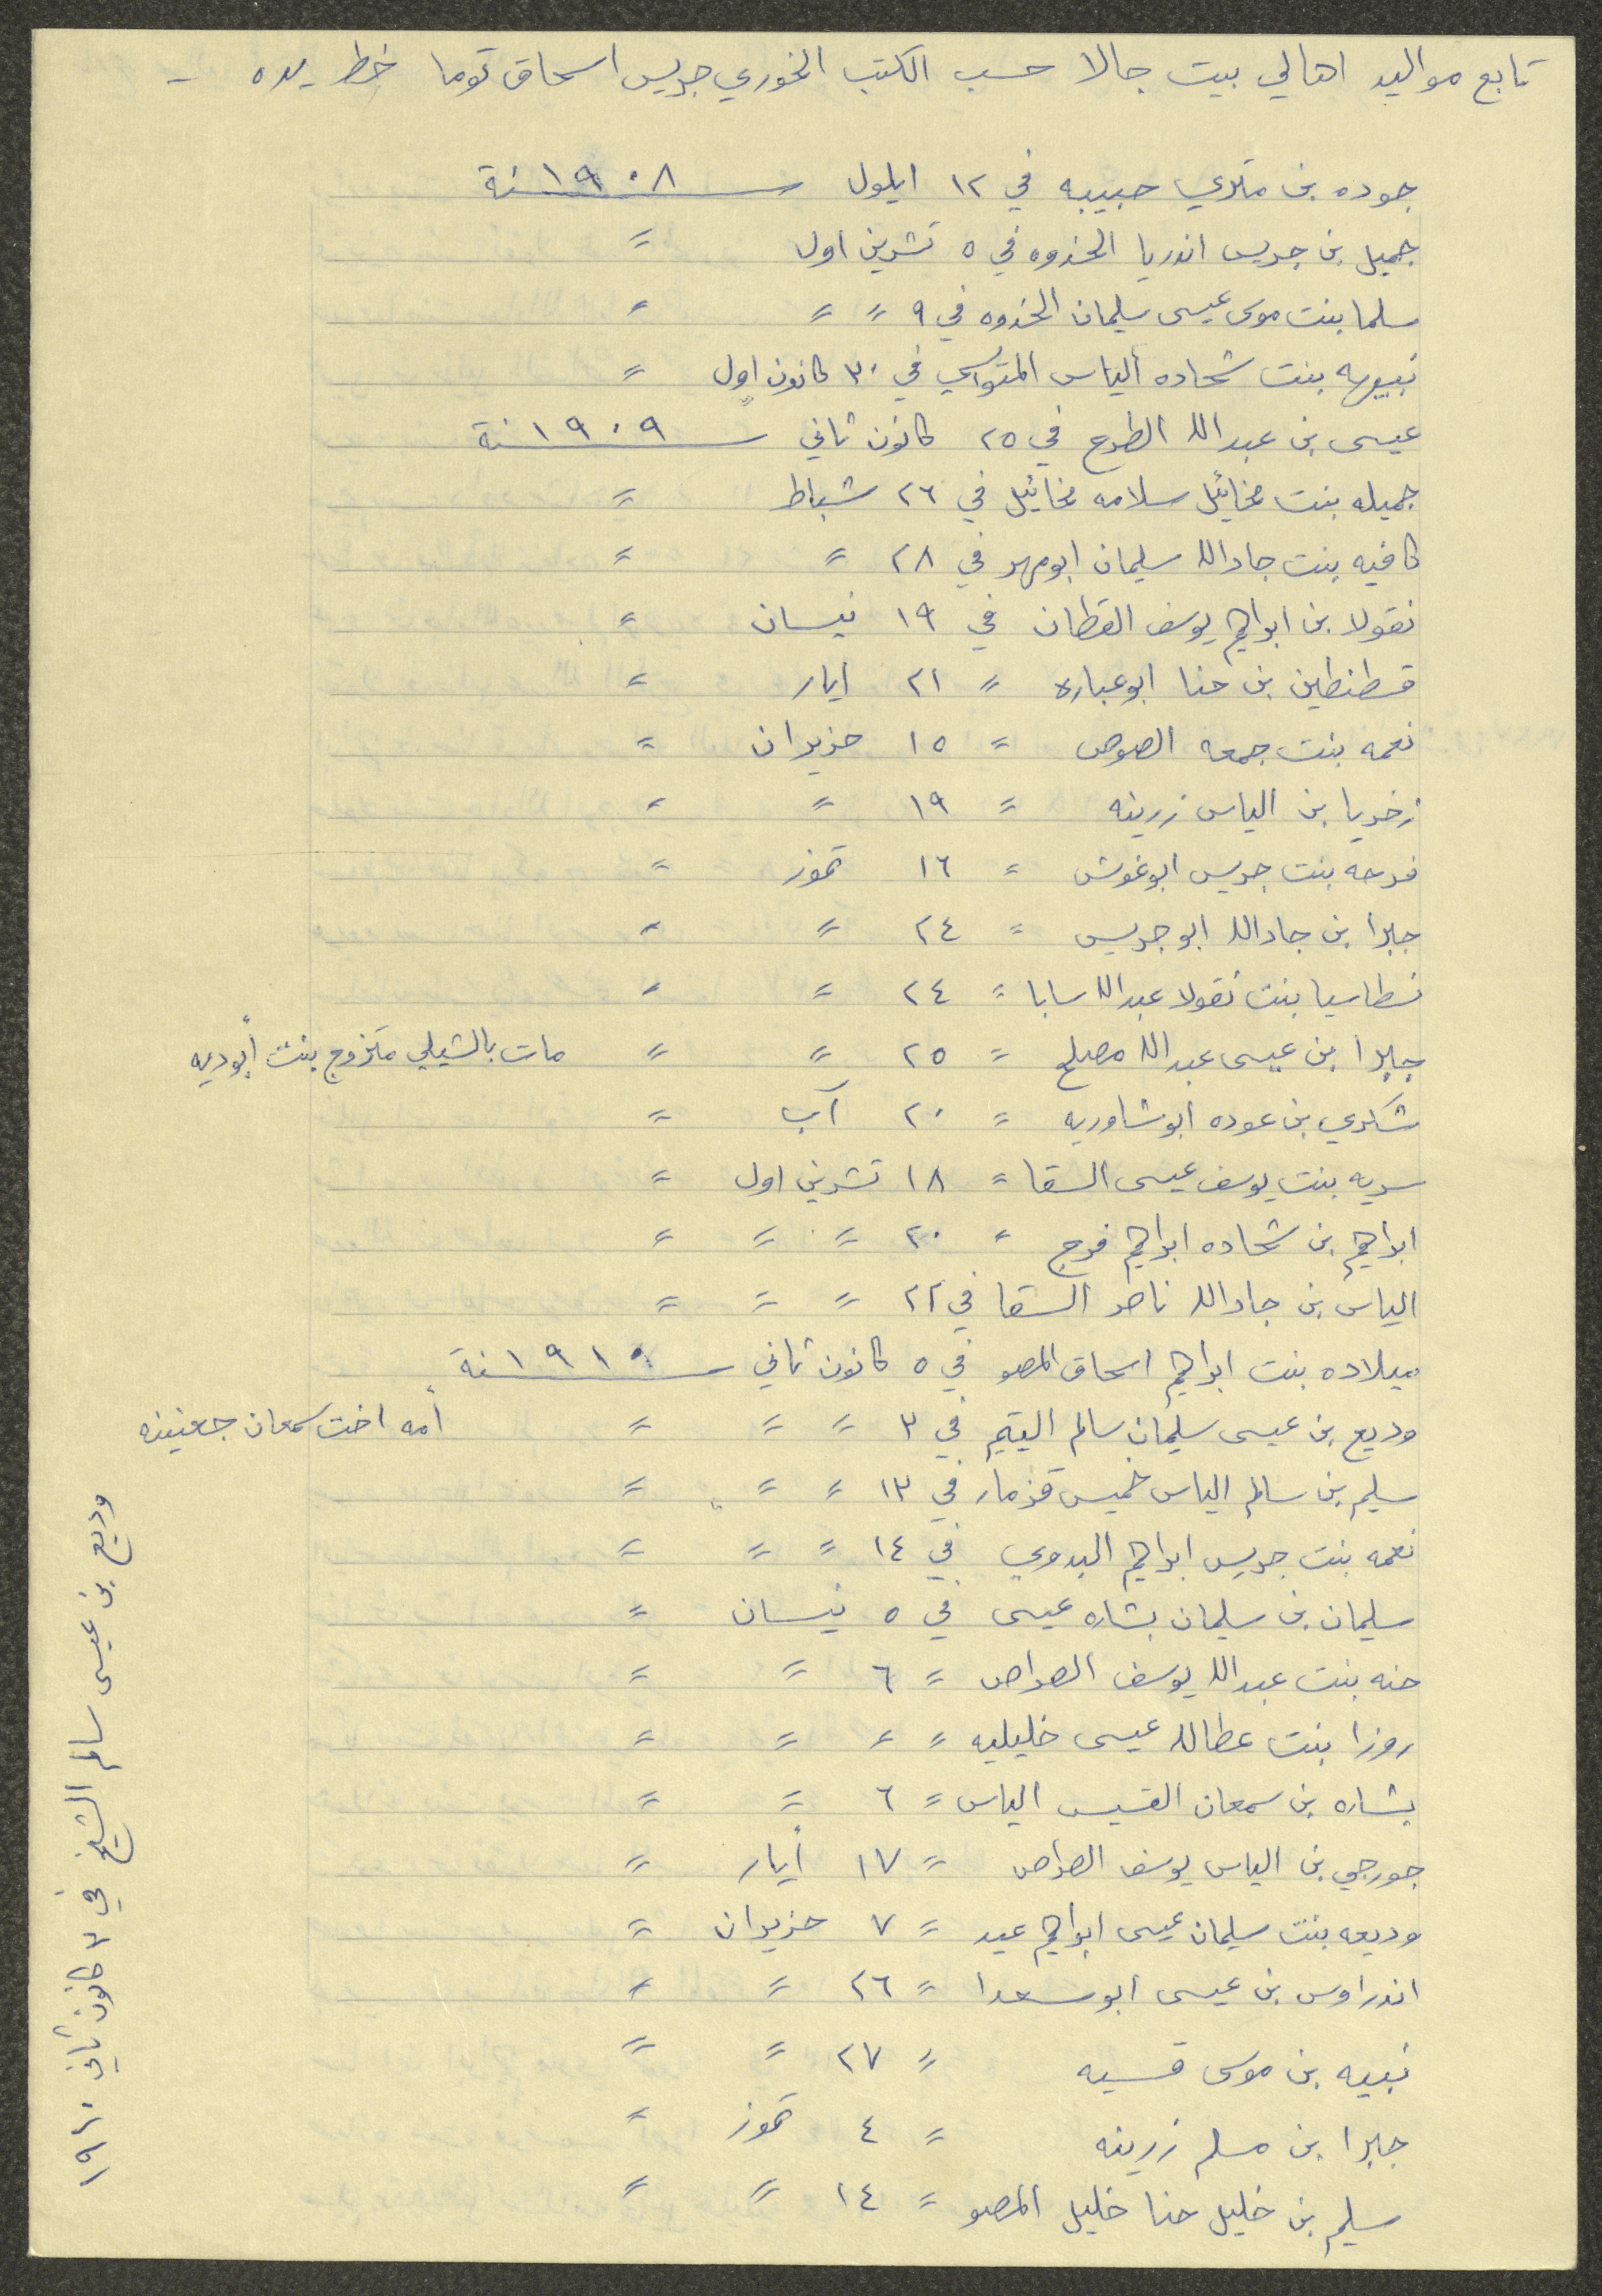 تابع مواليد اهالي بيت جالا حسب الكتب الخوري جريس اسحاق توما خط يده -
جوده بن متري حبيبه في ١٢ ايلول سنة ١٩٠٨
جميل بن جريس اندريا الحذوه في ٥ تشرين اول =
سلما بنت موسى عيسى سليمان الحذوه في ٩ = = =
نبيهه بنت شحاده الياس المتواسي في ٣٠ كانون اول =
عيسى بن عبدالله الطرح في ٢٥ كانون ثاني سنة ١٩٠٩
جميله بنت مخائيل سلامه مخائيل في ٢٦ شباط =
كافيه بنت جادالله سليمان ابومهر في ٢٨ = =
نقولا بن ابراهيم يوسف القطان في ١٩ نيسان =
قسطنطين بن حنا ابوعباره = ٢١ ايار =
نعمه بنت جمعه الصوص = ١٥ حزيران =
زخريا بن الياس زرينه = ١٩ = =
فرحه بنت جريس ابوغوش = ١٦ تموز =
جبرا بن جادالله ابو جريس = ٢٤ = =
نسطاسيا بنت نقولا عبدالله سابا = ٢٤ = =
جبرا بن عيسى عبدالله مصلح = ٢٥ = = مات بالشيلي متزوج بنت ابوديه
شكري بن عوده ابوشاوريه = ٢٠ آب =
سريه بنت يوسف عيسى السقا = ١٨ تشرين اول =
ابراهيم بن شحاده ابراهيم فرج = ٢٠ = = =
الياس بن جادالله ناصر السقا في ٢٢ = = =
ميلاده بنت ابراهيم اسحاق المصو في ٥ كانون ثاني سنة ١٩١٠
وديع بن عيسى سليمان سالم اليتيم في ٣ = = = أمه اخت سمعان جعنينه
سليم بن سالم الياس خميس قزمار في ١٣ = = =
نعمه بنت جريس ابراهيم البدوي في ١٤ = = =
سليمان بن سليمان بشاره عيسى في ٥ نيسان =
حنه بنت عبدالله يوسف الصراص = ٦ = =
روزا بنت عطالله عيسى خليليه = = = =
بشاره بن سمعان القسيس الياس = ٦ = =
جورجي بن الياس يوسف الصراص = ١٧ أيار =
وديعه بنت سليمان عيسى ابراهيم عيد = ٧ حزيران =
اندراوس بن عيسى ابو سعدا = ٢٦ = =
نبيه بن موسى قسيه = ٢٧ = =
جبرا بن مسلم زرينه = ٤ تموز =
سليم بن خليل حنا خليل المصو = ١٤ = =
وديع بن عيسى سالم الشيخ في كانون ثاني ١٩٢٠